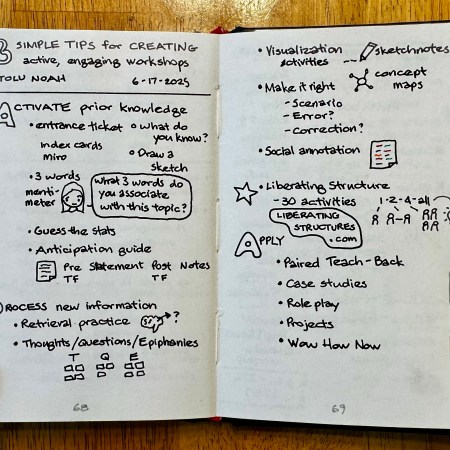 3 SIMPLE TIPS for CREATING
active, engaging workshops
TOLU NOAH 6-17-2025
ACTIVATE prior knowledge
• entrance ticket
index cards
miro
• What do you know?
• Draw a sketch
• 3 words
menti-
meter
What 3 words do
you associate
with this topic?
• Guess the stats
• Anticipation guide
Pre Statement Post Notes
TF TF
PROCESS new information
• Retrieval practice ?
• Thoughts/Questions/Epiphanies
T Q E
68
• Visualization
activities -- sketchnotes
concept
maps
• Make it right
- Scenario
- Error?
- Correction?
• Social annotation
• Liberating Structure
- 30 activities
1-2-4-all
LIBERATING
STRUCTURES
.com
APPLY
• Paired Teach-Back
• Case studies
• Role play
• Projects
• Wow How Now
69